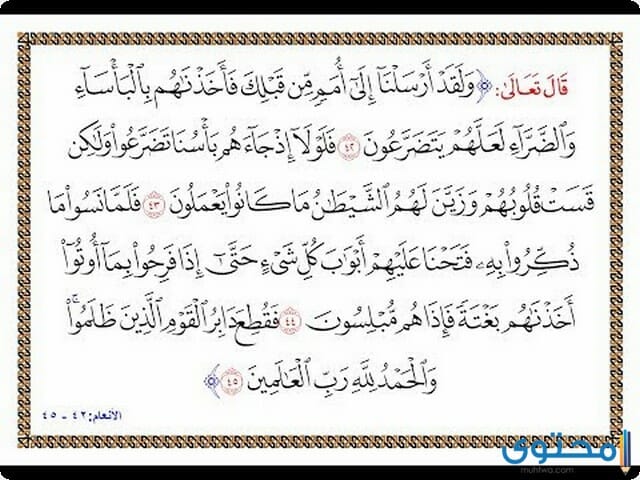 قَالَ تَعَالَىٰ: ﴿وَلَقَدْ أَرْسَلْنَا إِلَىٰ أُمَمٍ مِّن قَبْلِكَ فَأَخَذْنَاهُم بِالْبَأْسَاءِ
وَالضَّرَّاءِ لَعَلَّهُمْ يَتَضَرَّعُونَ ٤٢ فَلَوْلَا إِذْ جَاءَهُم بَأْسُنَا تَضَرَّعُوا وَلَٰكِن
قَسَتْ قُلُوبُهُمْ وَزَيَّنَ لَهُمُ الشَّيْطَانُ مَا كَانُوا يَعْمَلُونَ ٤٣ فَلَمَّا نَسُوا مَا
ذُكِّرُوا بِهِ فَتَحْنَا عَلَيْهِمْ أَبْوَابَ كُلِّ شَيْءٍ حَتَّىٰ إِذَا فَرِحُوا بِمَا أُوتُوا
أَخَذْنَاهُم بَغْتَةً فَإِذَا هُم مُّبْلِسُونَ ٤٤ فَقُطِعَ دَابِرُ الْقَوْمِ الَّذِينَ ظَلَمُوا ۚ
وَالْحَمْدُ لِلَّهِ رَبِّ الْعَالَمِينَ ٤٥﴾
الأنعام: ٤٢ - ٤٥
محتوى
muhtwa.com